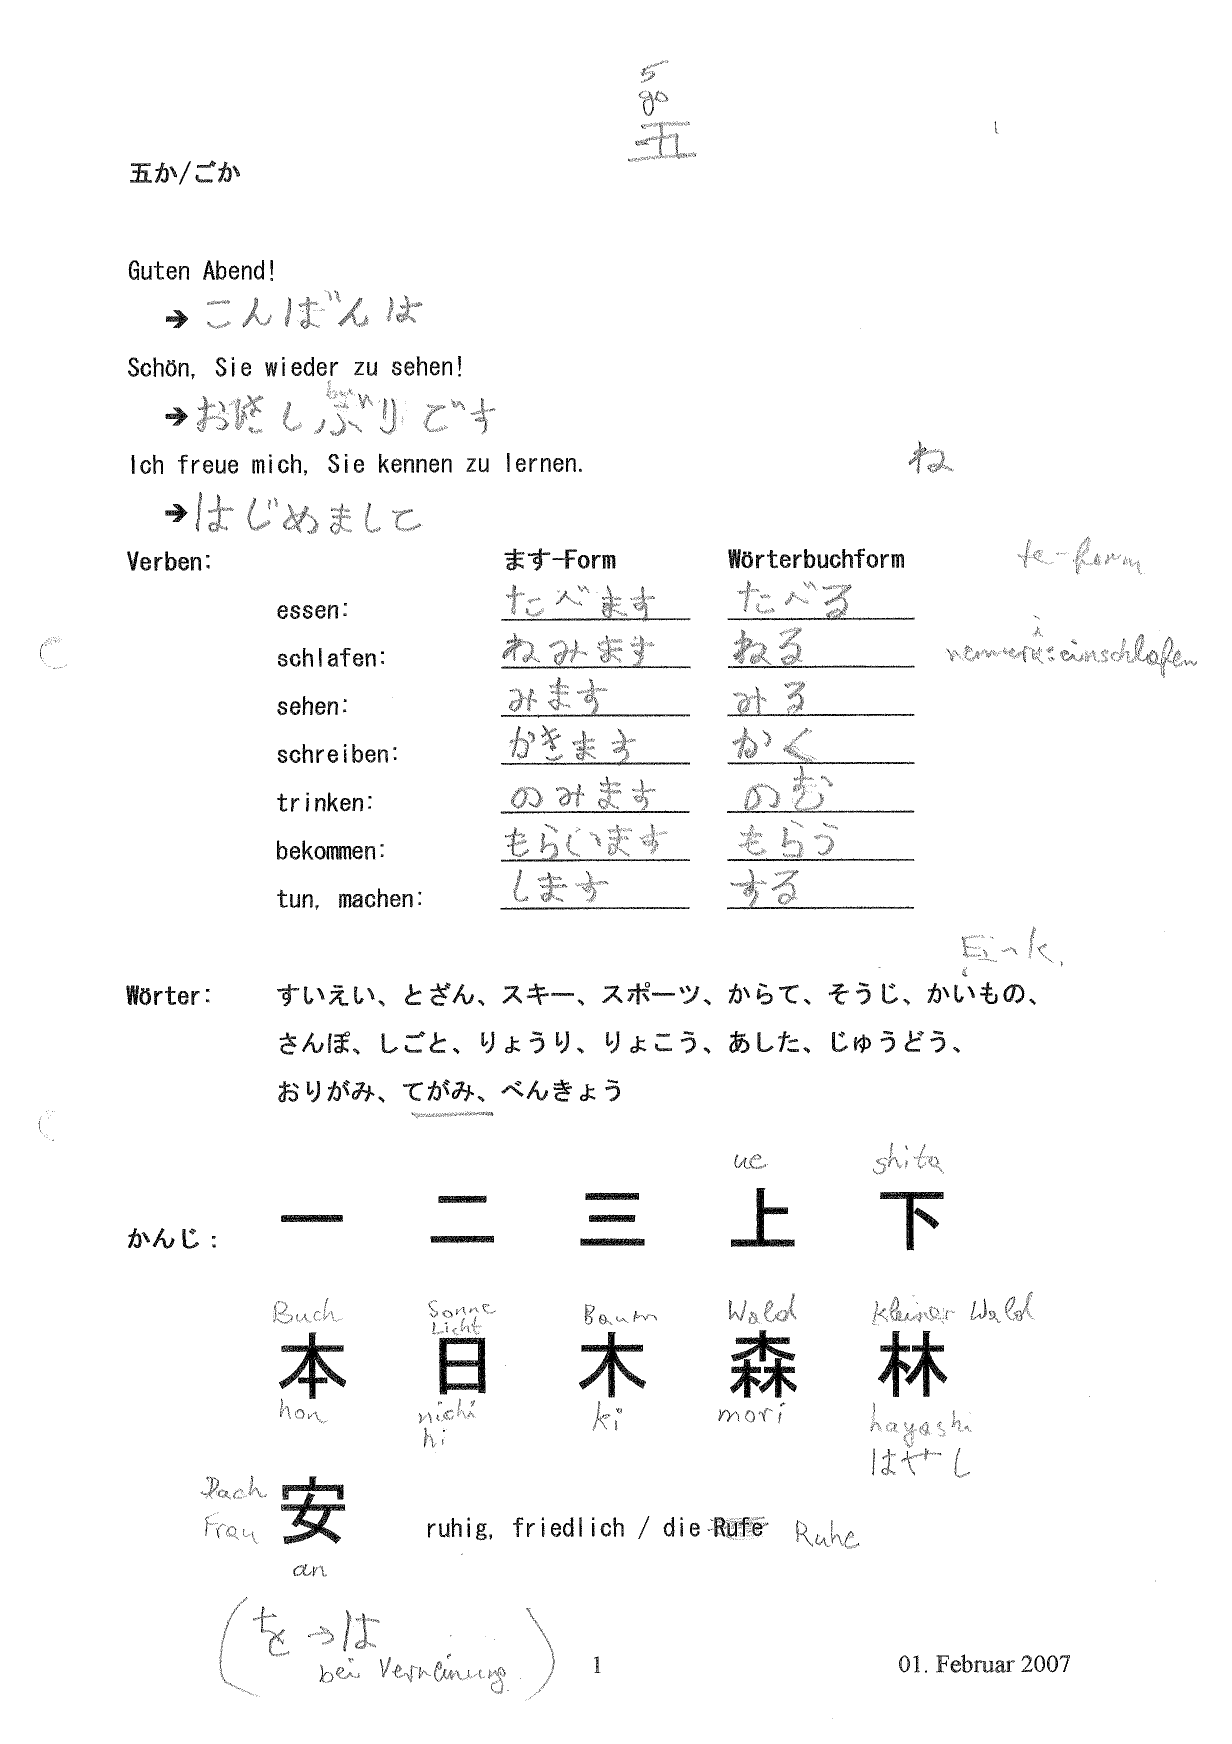 5
go
五
五か/ごか
Guten Abend!
➔ こんばんは
Schön, Sie wieder zu sehen!
➔ しぶりです
Ich freue mich, Sie kennen zu lernen.
ね
➔ はじめまして
Verben: ます-Form Wörterbuchform te-form
essen: たべます たべる
schlafen: ねみます ねる einschlafen
sehen: みます みる
schreiben: かきます かく
trinken: のみます のむ
bekommen: もらいます もらう
tun, machen: します する
Eink.
Wörter: すいえい、とざん、スキー、スポーツ、からて、そうじ、かいもの、
さんぽ、しごと、りょうり、りょこう、あした、じゅうどう、
おりがみ、てがみ、べんきょう
ue shita
かんじ: 一 二 三 上 下
Buch Sonne Licht Baum Wald kleiner Wald
本 日 木 森 林
hon nichi hi ki mori hayashi
はやし
Dach Frau 安 ruhig, friedlich / die Rufe Ruhe
an
(を→は
bei Verneinung)
1 01. Februar 2007